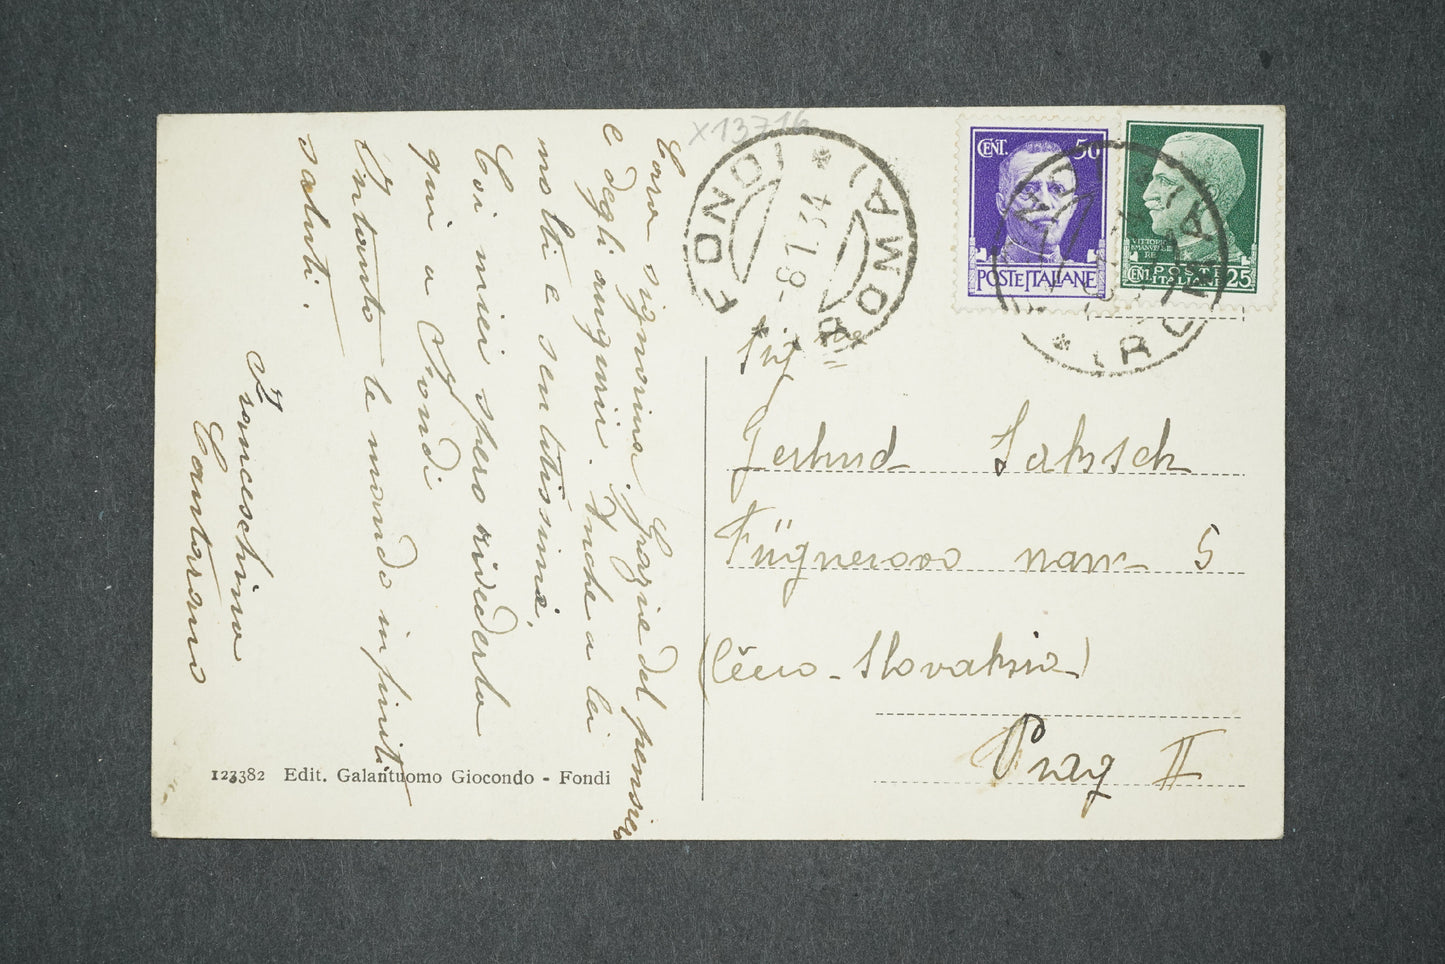 X13716
Cara signorina, Grazie del pensiero
e degli auguri. Anche a lei
molti e sentitissimi.
Coi miei spero rivederla
qui a Fondi
Intanto le mando infiniti
saluti.
Franceschino
Cantarano
123382 Edit. Galantuomo Giocondo - Fondi
FONDI * (ROMA) *
-8.1.34
CENT. 50
POSTE ITALIANE
VITTORIO
EMANUELE
RE
CENT. POSTE ITALIANE 25
FONDI * (ROMA) *
Gertrud Saksch
Fügnerovo nam 5
(Ceco-Slovakia)
Prag II